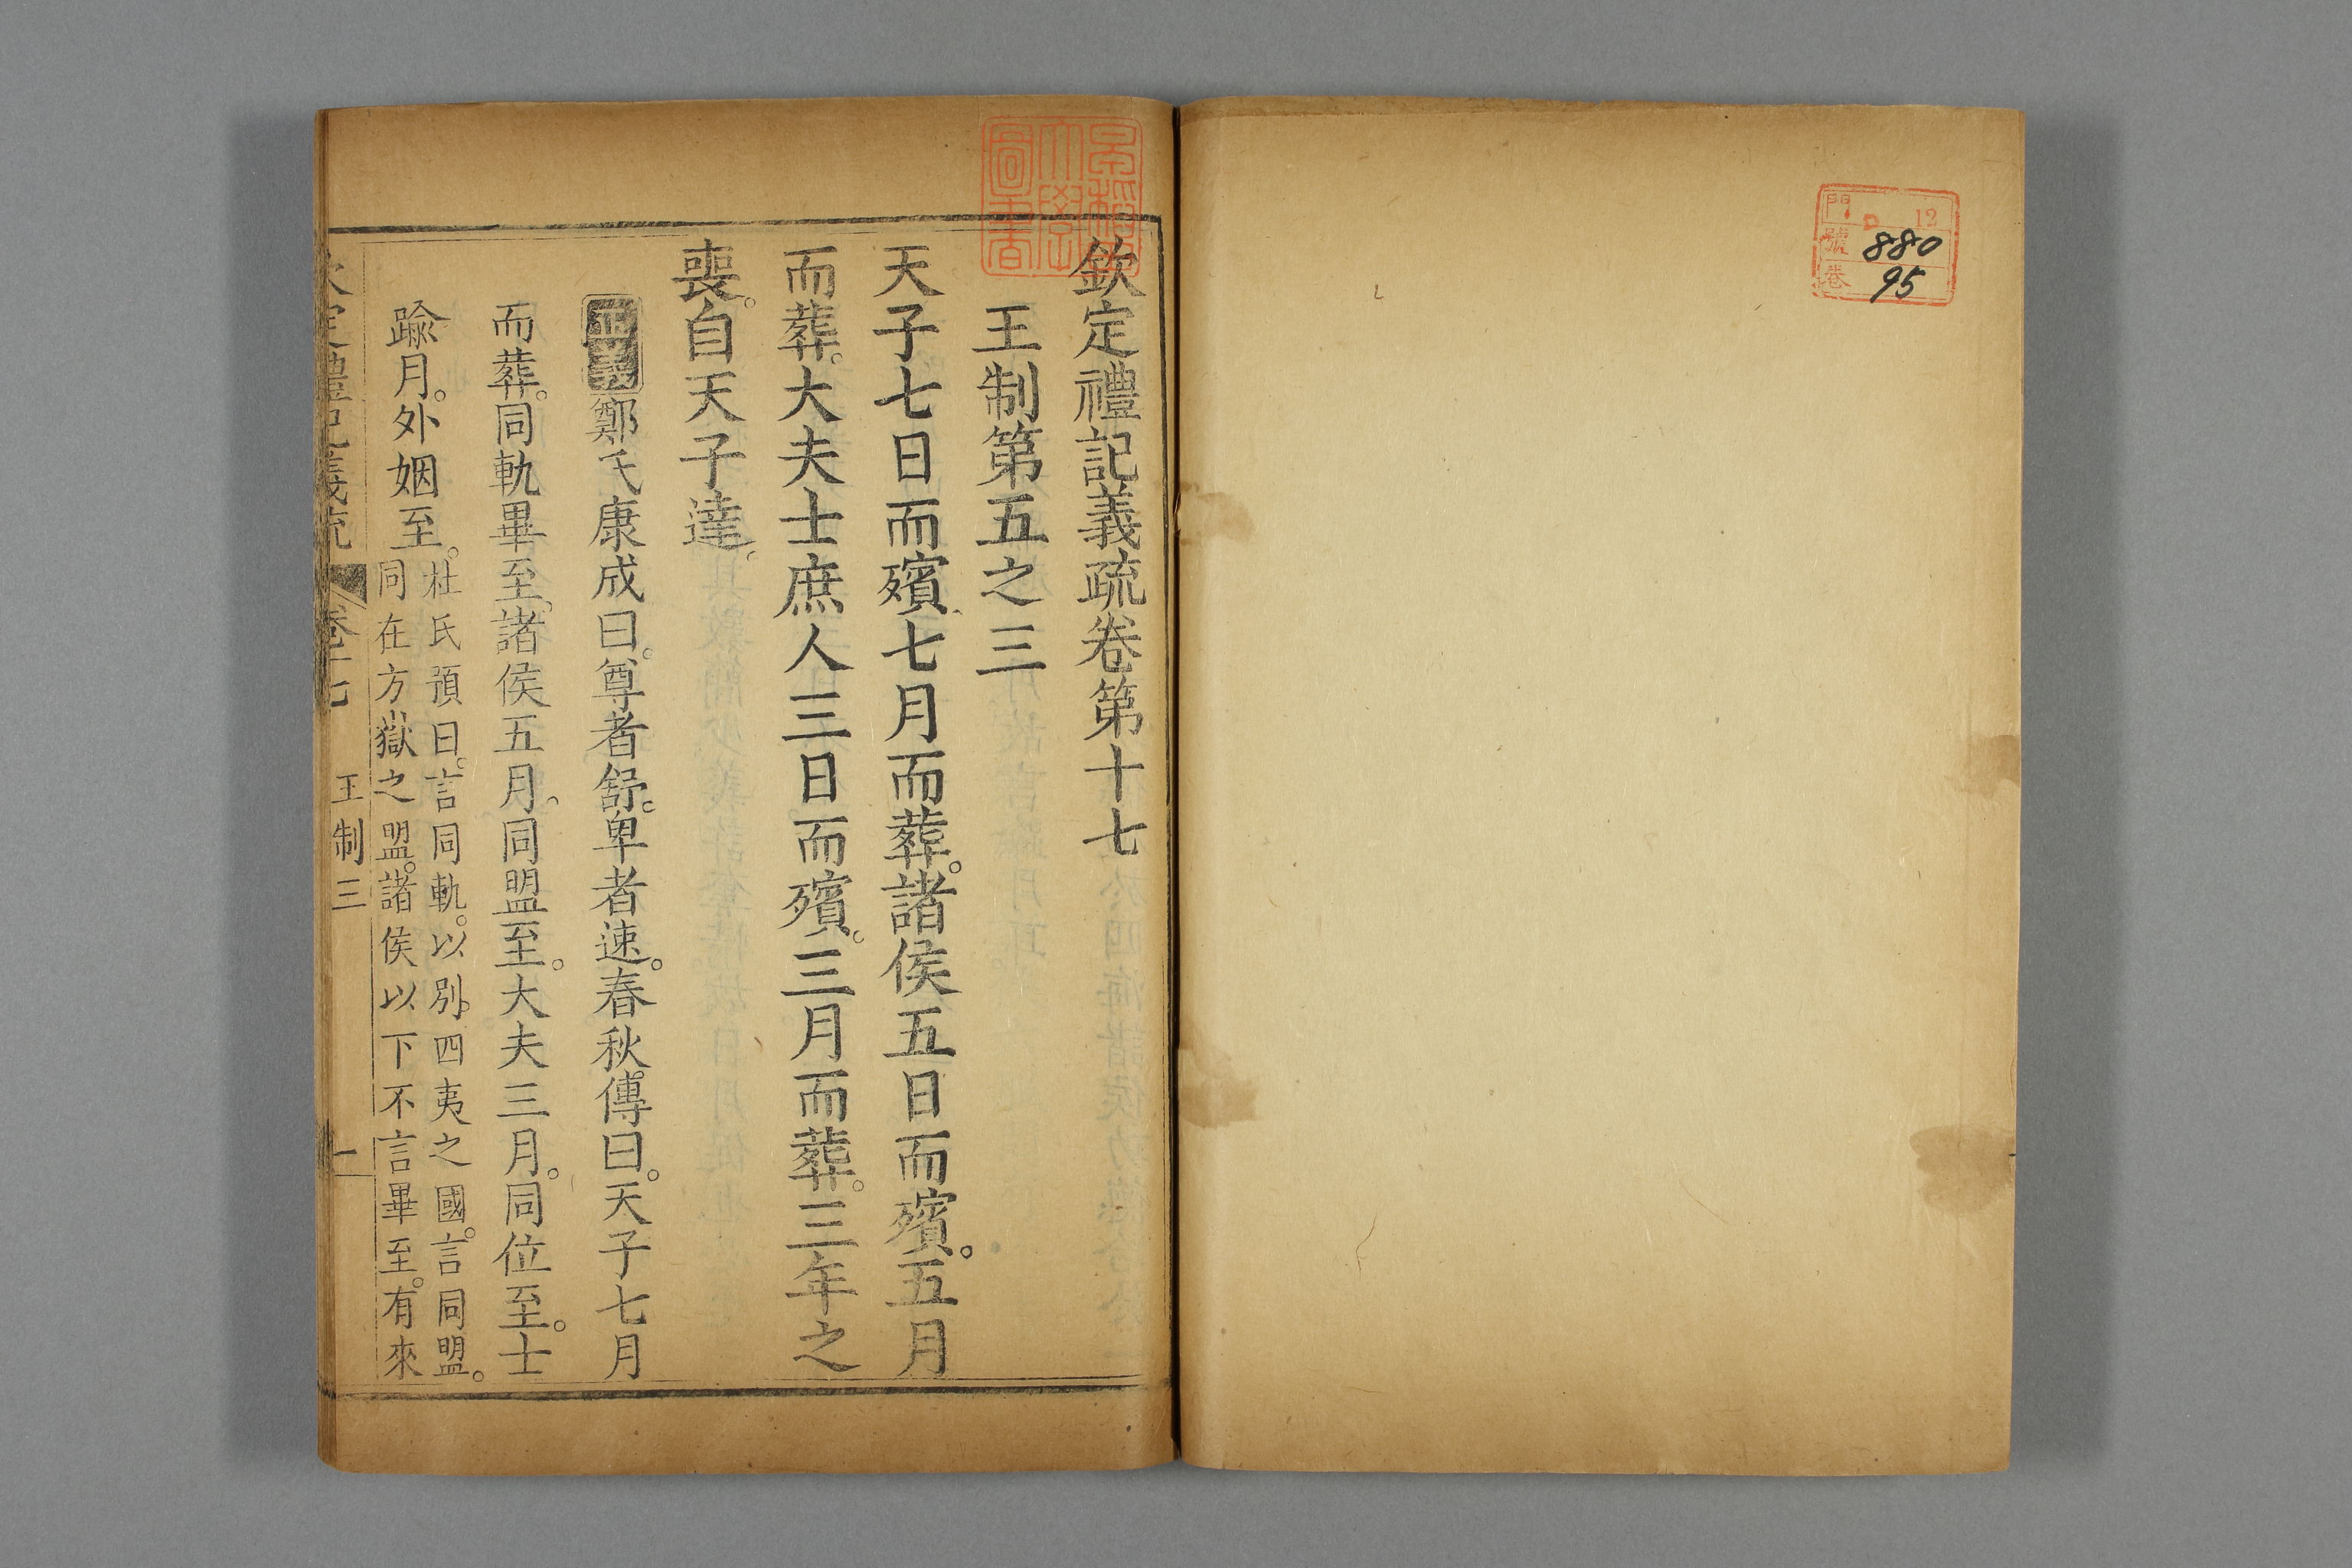 門 12
號 880
卷 95
早稻田大學圖書
欽定禮記義疏卷第十七
王制第五之三
天子七日而殯七月而葬。諸侯五日而殯。五月
而葬。大夫士庶人三日而殯。三月而葬。三年之
喪。自天子達。
正義鄭氏康成曰。尊者舒。卑者速。春秋傳曰。天子七月
而葬。同軌畢至。諸侯五月。同盟至。大夫三月。同位至。士
踰月。外姻至。
杜氏預曰。言同軌。以別四夷之國。言同盟。
同在方嶽之盟。諸侯以下不言畢至。有來
欽定禮記義疏 卷十七 王制三 一